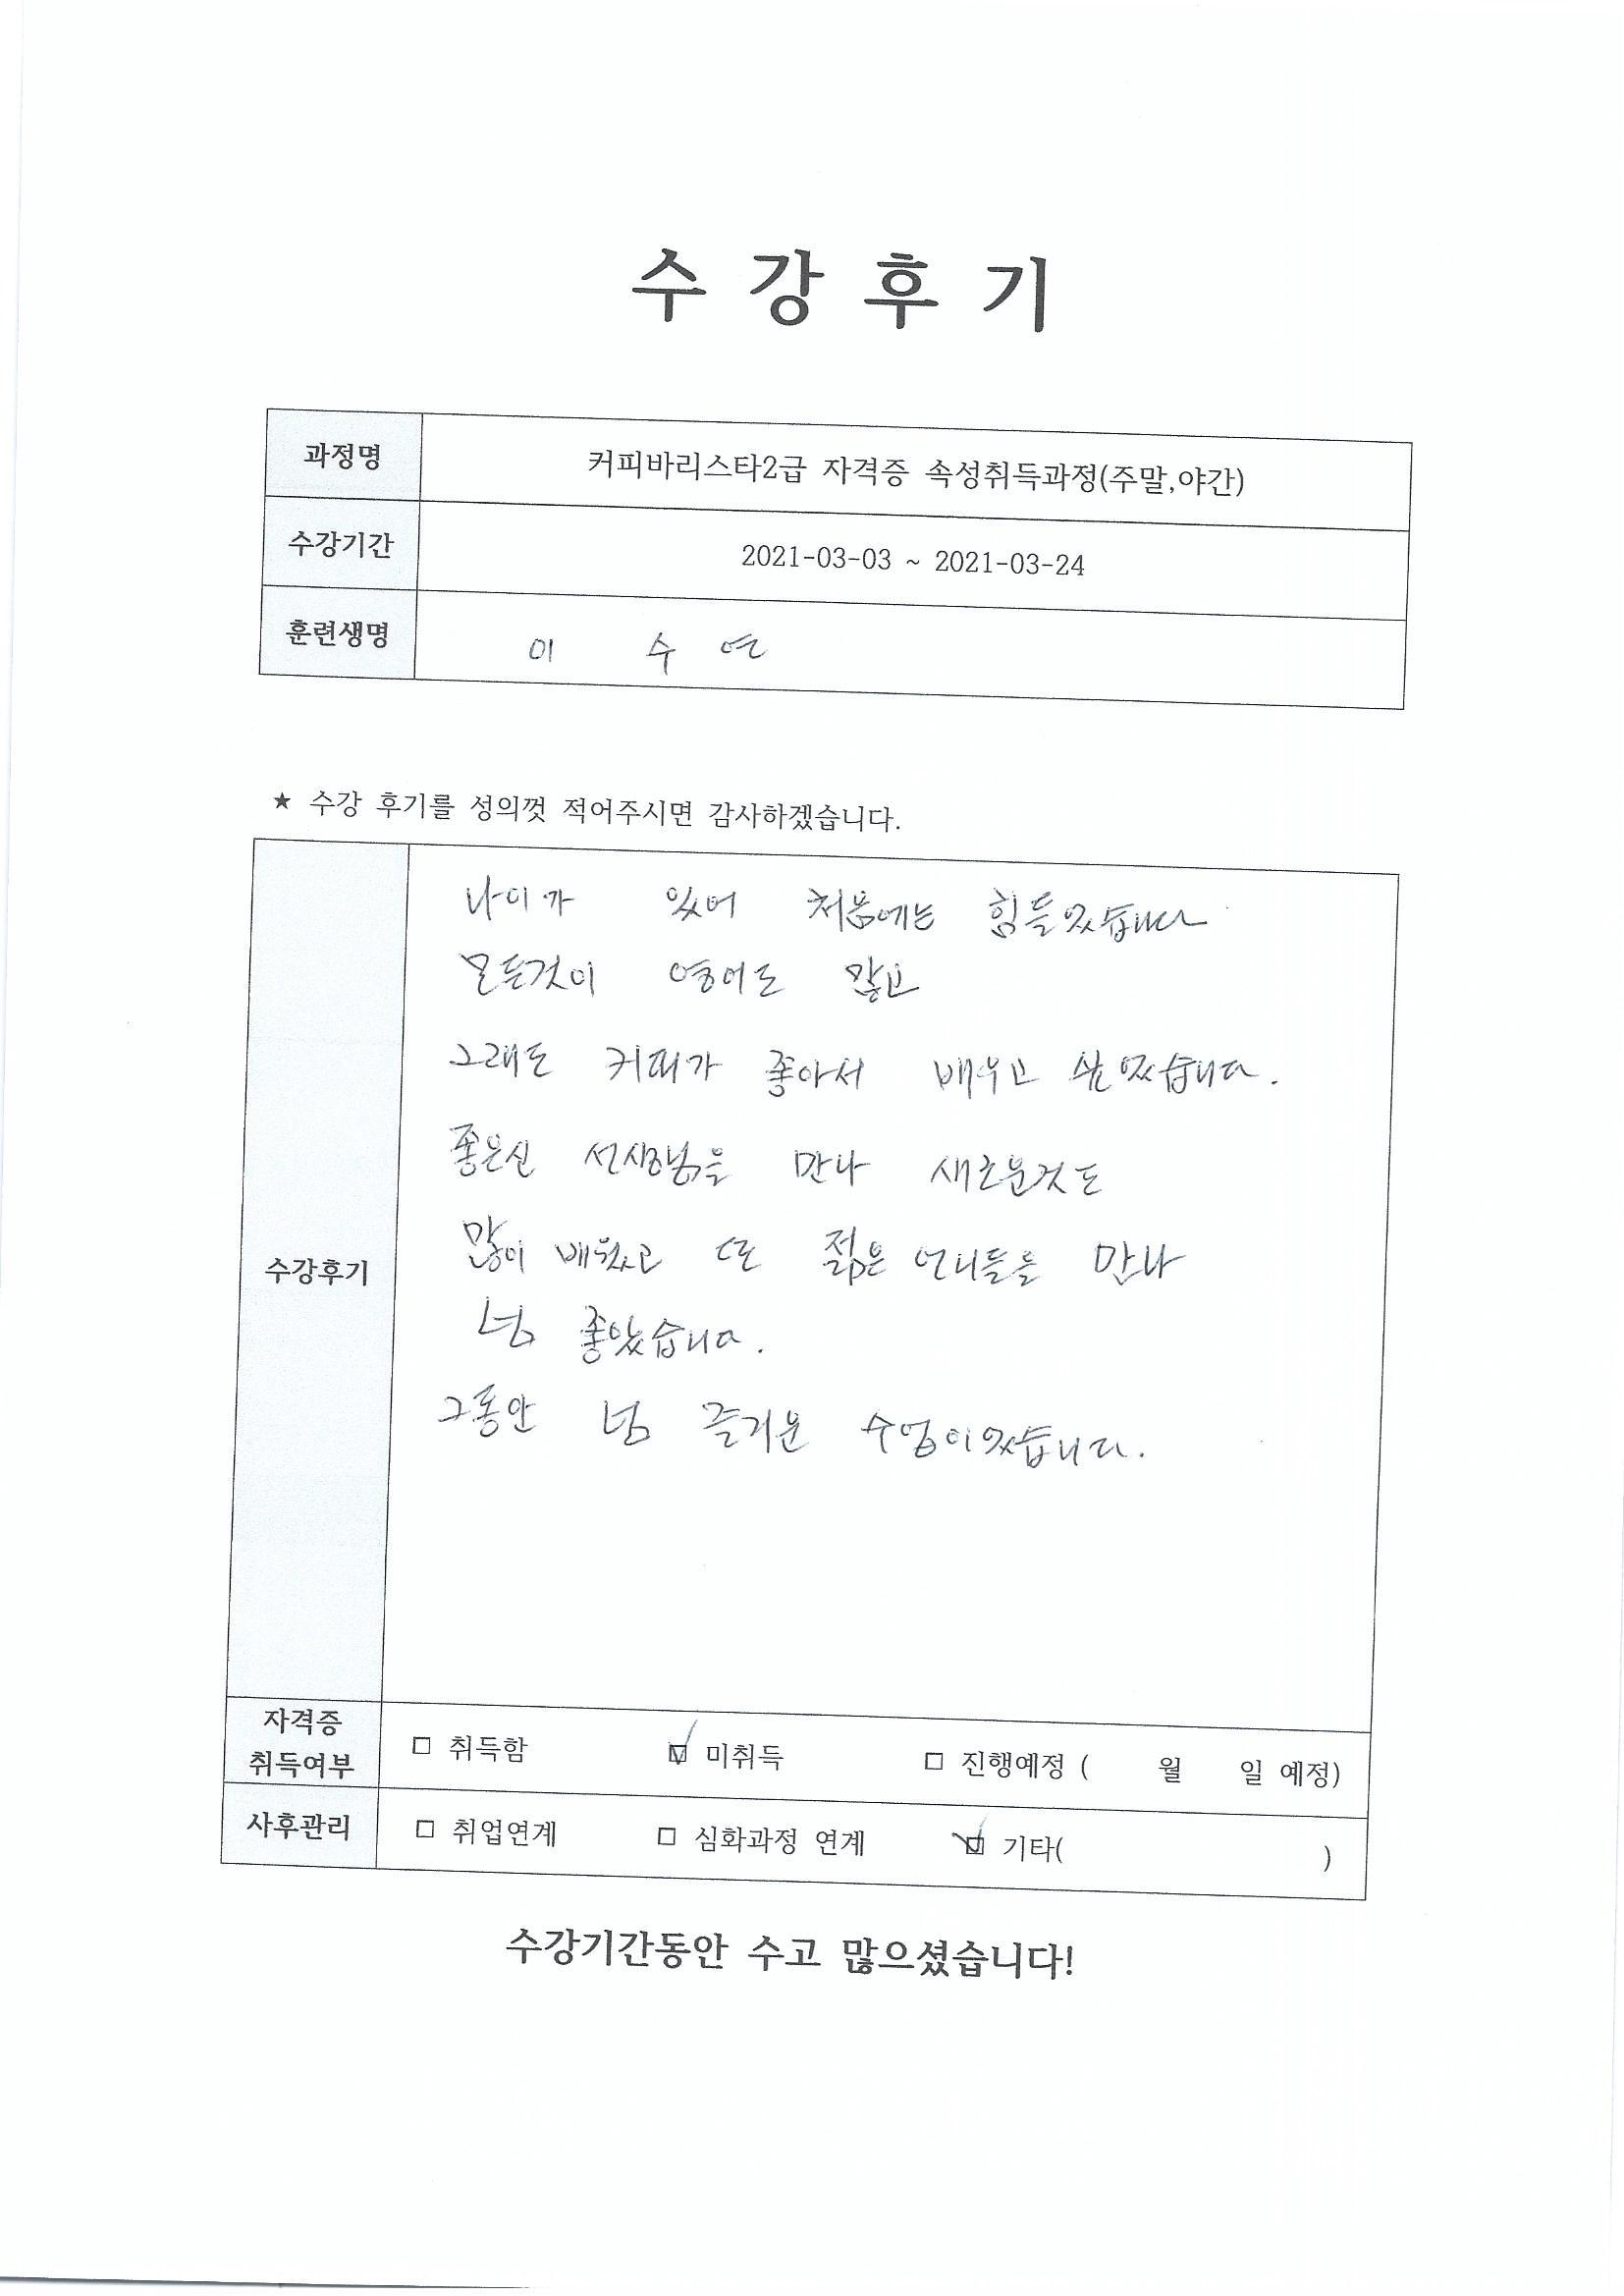 수 강 후 기
과정명 커피바리스타2급 자격증 속성취득과정(주말,야간)
수강기간 2021-03-03 ~ 2021-03-24
훈련생명 이 수 연
★ 수강 후기를 성의껏 적어주시면 감사하겠습니다.
나이가 있어 처음에는 힘들었습니다
모든것이 영어도 많고
그래도 커피가 좋아서 배우고 싶었습니다.
좋은신 선생님을 만나 새로운것도
수강후기
많이 배웠고 또 젊은 언니들을 만나
넘 좋았습니다.
그동안 넘 즐거운 수업이었습니다.
자격증
취득여부 □ 취득함 ☑ 미취득 □ 진행예정 ( 월 일 예정)
사후관리 □ 취업연계 □ 심화과정 연계 ☑ 기타( )
수강기간동안 수고 많으셨습니다!